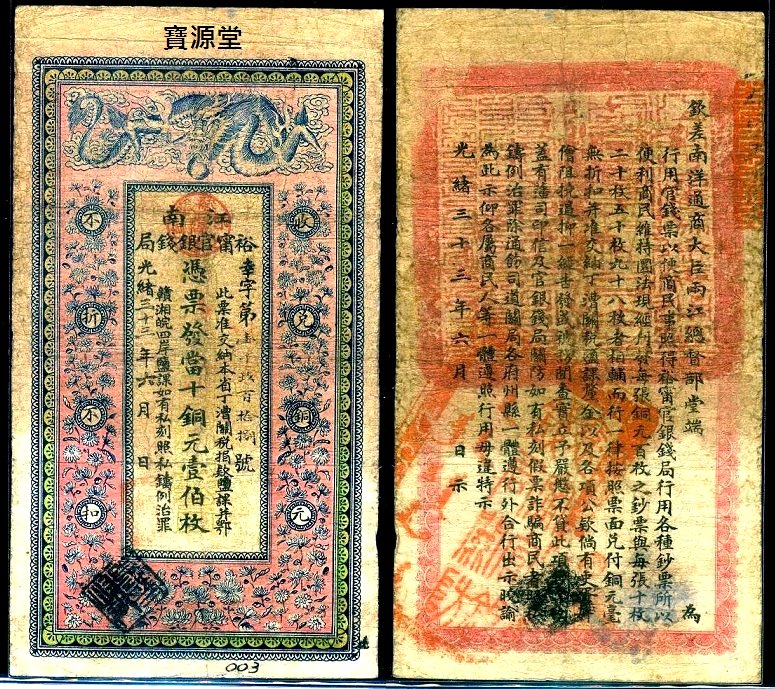 寶源堂
江南
裕甯官銀錢局
收兌銅元
不折不扣
字第
號
此票准交納本省丁漕關稅捐款鹽課并鄂
憑票發當十銅元壹佰枚
贛湘皖四岸鹽課如有私刻照私鑄例治罪
光緒三十三年六月 日
003
欽差南洋通商大臣兩江總督部堂端 為
行用官錢票以便商民事照得裕甯官銀錢局行用各種鈔票所以
便利商民維持圜法現經刊發每張銅元百枚之鈔票與每張十枚
二十枚五十枚九十八枚者相輔而行一律按照票面兌付銅元毫
無折扣并准交納丁漕關稅鹽課厘金以及各項公款倘有
阻撓遏抑一經告發或被訪聞查實立予嚴懲不貸此項
蓋有藩司印信及官銀錢局關防如有私刻假票詐騙商民者
鑄例治罪除通飭司道關局各府州縣一體遵行外合行出示曉諭
為此示仰各屬商民人等一體遵照行用毋違特示
光緒三十三年六月 日示